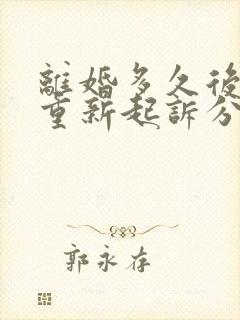 離婚多久後
重新起訴分
郭永存